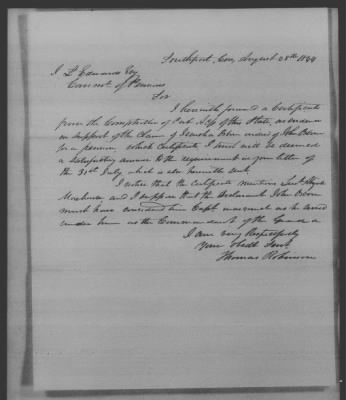 Southport, Con, August 28th 1844
J L Edwards Esq
Commr of Pensions
Sir
I herewith forward a Certificate
from the Comptroller of Pub. Accts of this State, as evidence
in support of the Claim of widow of John
for a pension, which Certificate I trust will be deemed
a satisfactory answer to the requirement in your letter of
the 31st July which is also herewith sent.
I notice that the certificate mentions Lieut
and I suppose that the Declarant John
must have considered him Capt. inasmuch as he served
under him as the Commandant of the Guard
I am very Respectfully
Your Obedt Servt
Thomas Robinson